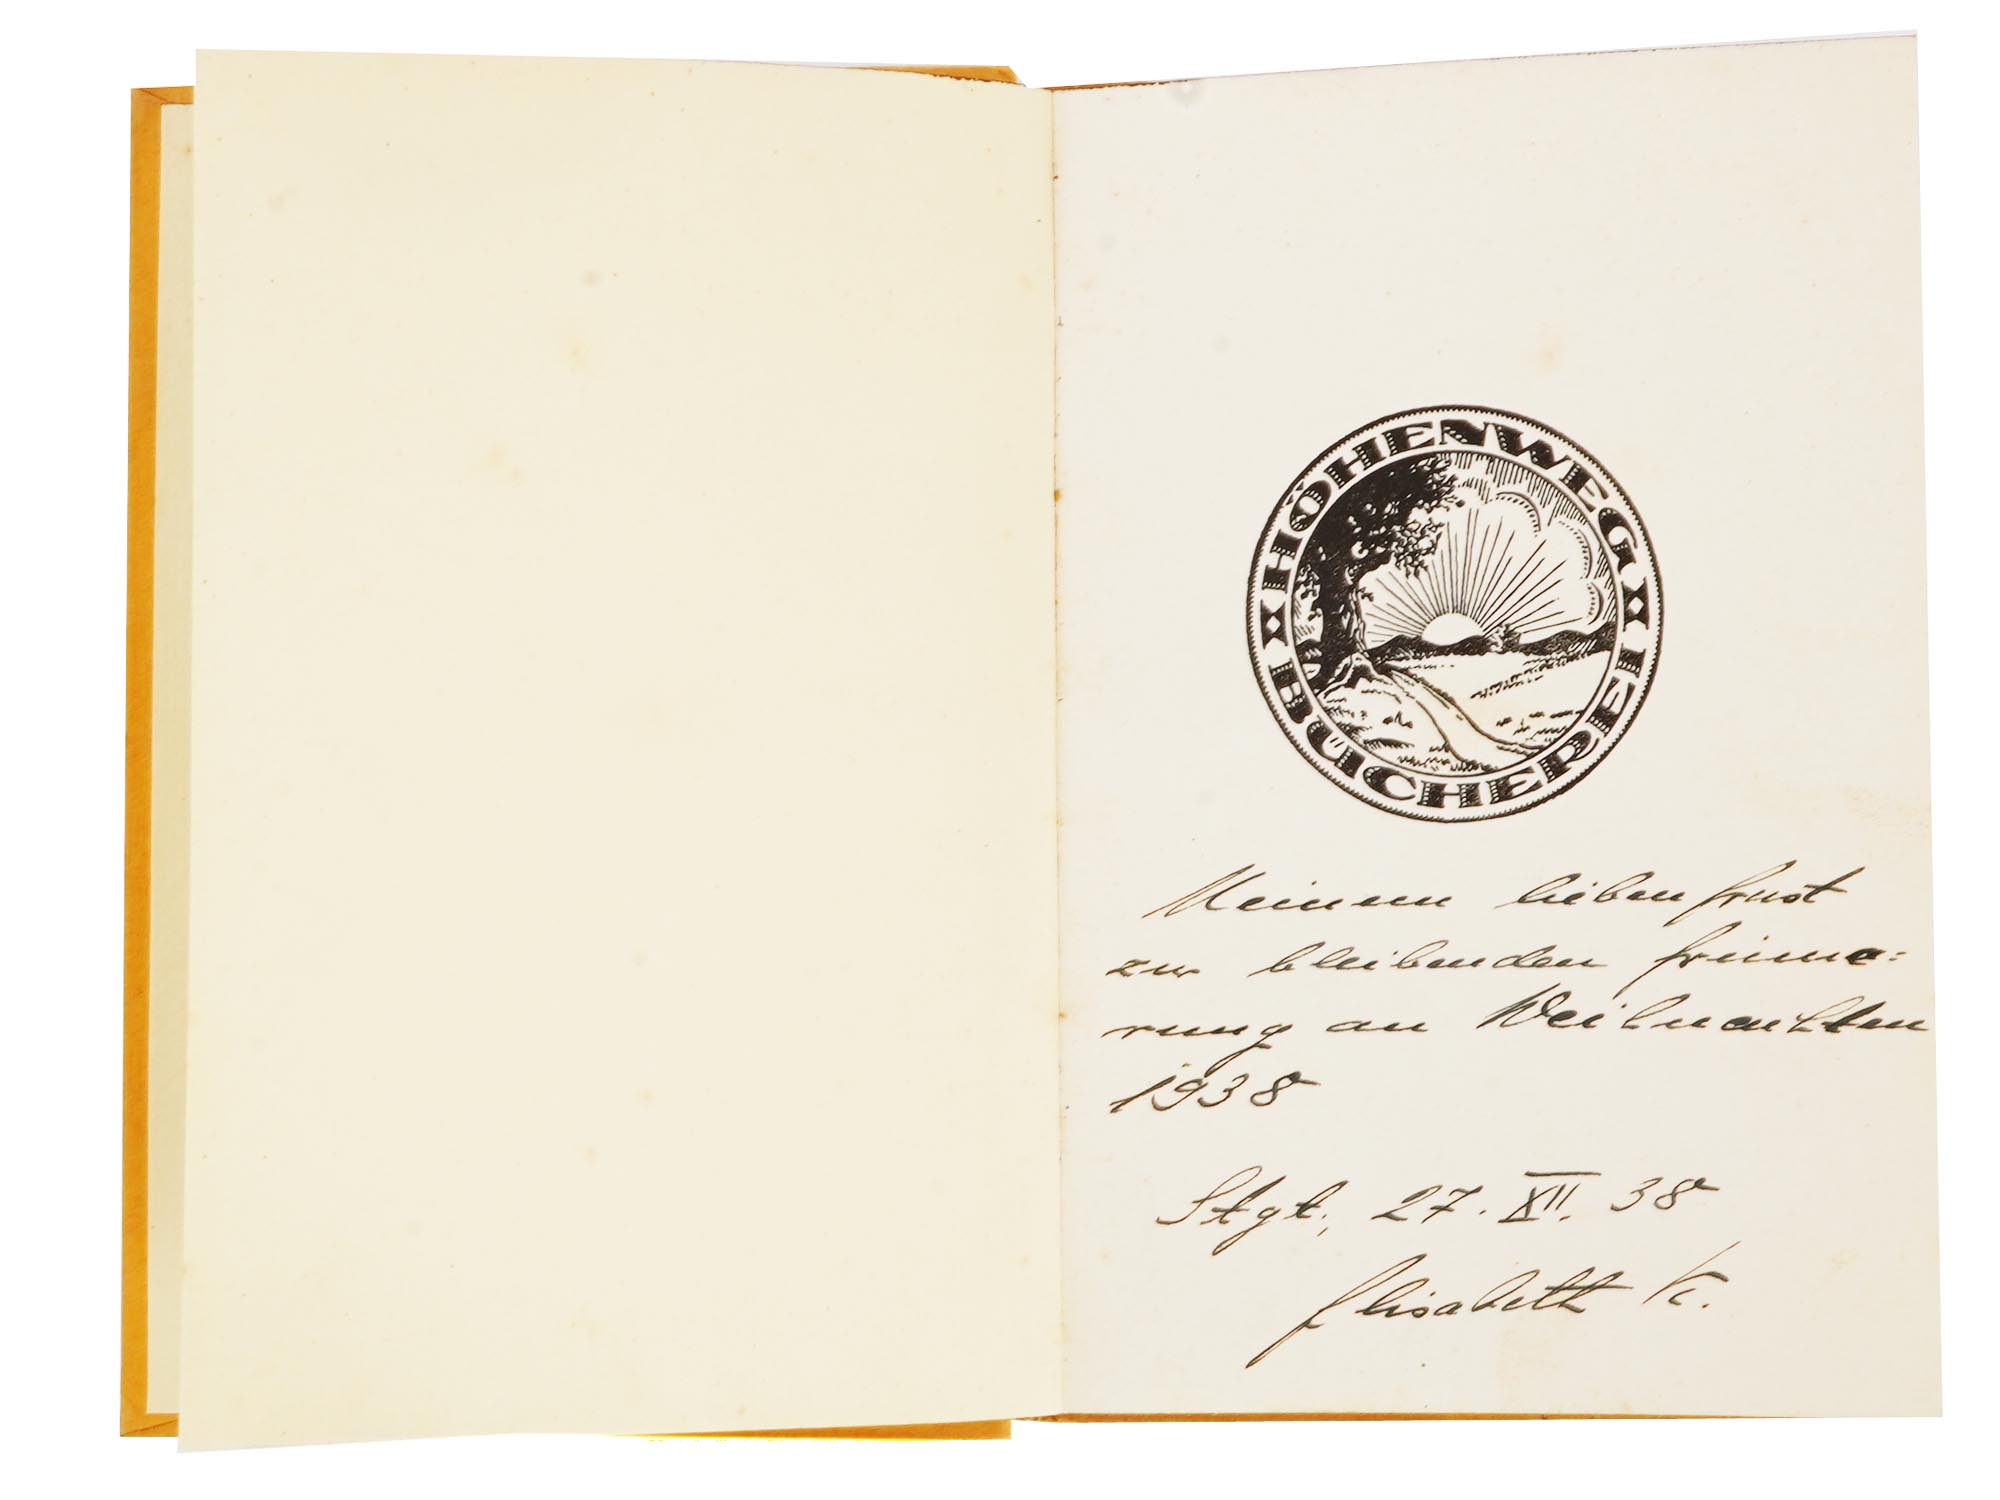 HÖHENWEG
BÜCHEREI
Meinem lieben Ernst
zur bleibenden Erinne=
rung an Weihnachten
1938
Stgt., 27. XII. 38
Elisabeth K.